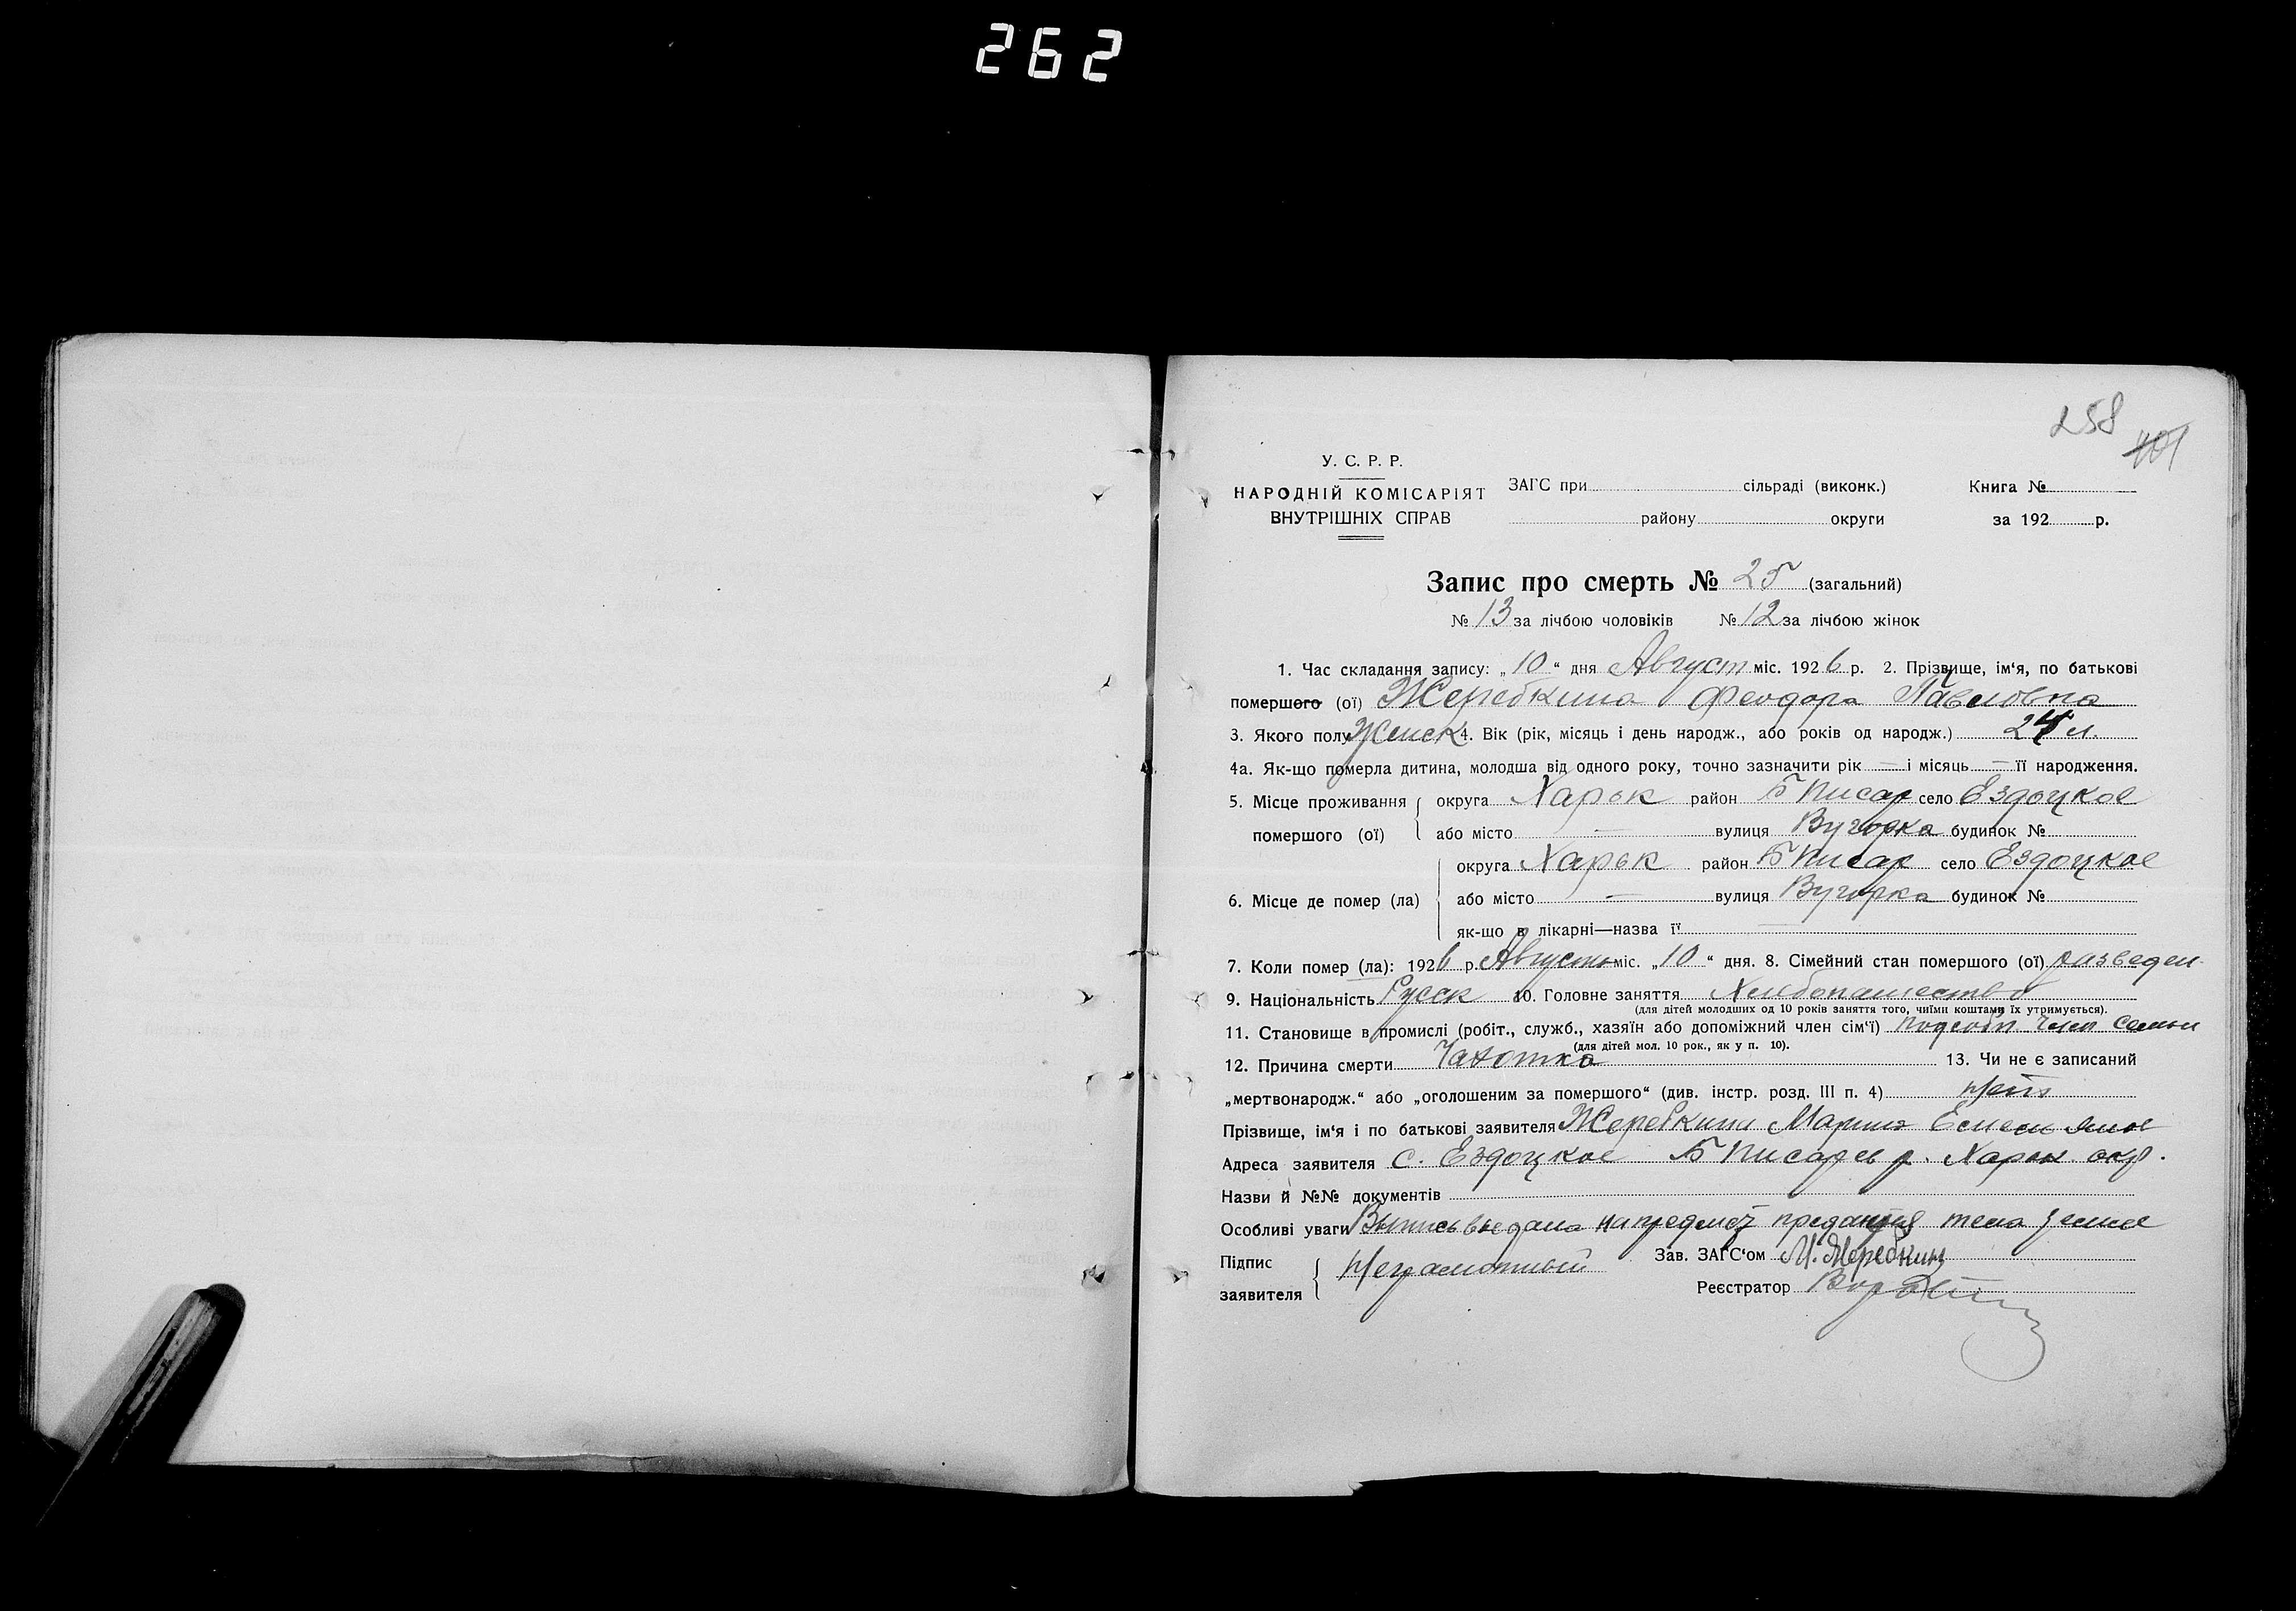 262
258
401
У. С. Р. Р.
НАРОДНІЙ КОМІСАРІЯТ
ВНУТРІШНІХ СПРАВ
ЗАГС при сільраді (виконк.)
району округи
Книга №
за 192 р.
Запис про смерть № 25 (загальний)
№ 13 за лічбою чоловіків № 12 за лічбою жінок
1. Час складання запису: „10“ дня Август міс. 1926 р. 2. Прізвище, ім‘я, по батькові
помершого (ої) Жеребкина Феодора Павловна
3. Якого полу Женск 4. Вік (рік, місяць і день народж., або років од народж.) 24 л.
4а. Як-що померла дитина, молодша від одного року, точно зазначити рік — і місяць — її народження.
5. Місце проживання помершого (ої) округа Харьк район Б Писар село Ездоцкое
або місто — вулиця будинок №
6. Місце де помер (ла) округа Харьк район Б Писар село Ездоцкое
або місто — вулиця будинок №
як-що в лікарні—назва її
7. Коли помер (ла): 1926 р. Август міс. „10“ дня. 8. Сімейний стан помершого (ої) разведен
9. Національність Русск 10. Головне заняття Хлебопашество
(для дітей молодших од 10 років заняття того, чиїми коштами їх утримується).
11. Становище в промислі (робіт., служб., хазяїн або допоміжний член сім‘ї) подсобн член семьи
(для дітей мол. 10 рок., як у п. 10).
12. Причина смерти Чахотка 13. Чи не є записаний
„мертвонародж.“ або „оголошеним за помершого“ (див. інстр. розд. III п. 4) нет
Прізвище, ім‘я і по батькові заявителя Жеребкина
Адреса заявителя с. Ездоцкое Б Писарев р. Харьк окр.
Назви й №№ документів
Особливі уваги Выпись выдана на предмет предания тела земле
Підпис заявителя Неграмотный
Зав. ЗАГС‘ом М. Жеребкин
Реєстратор